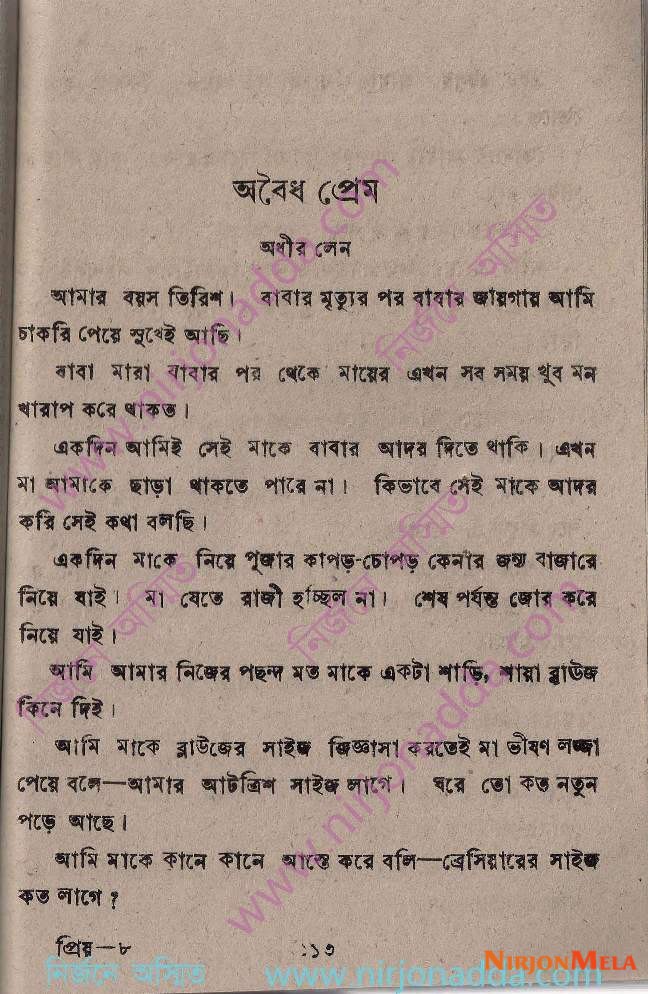 অবৈধ প্রেম
অধীর সেন
আমার বয়স তিরিশ। বাবার মৃত্যুর পর বাবার জায়গায় আমি
চাকরি পেয়ে সুখেই আছি।
বাবা মারা যাবার পর থেকে মায়ের এখন সব সময় খুব মন
খারাপ করে থাকত।
একদিন আমিই সেই মাকে বাবার আদর দিতে থাকি। এখন
মা আমাকে ছাড়া থাকতে পারে না। কিভাবে সেই মাকে আদর
করি সেই কথা বলছি।
একদিন মাকে নিয়ে পূজার কাপড়-চোপড় কেনার জন্য বাজারে
নিয়ে যাই। মা যেতে রাজী হচ্ছিল না। শেষ পর্যন্ত জোর করে
নিয়ে যাই।
আমি আমার নিজের পছন্দ মত মাকে একটা শাড়ি, শায়া ব্লাউজ
কিনে দিই।
আমি মাকে ব্লাউজের সাইজ জিজ্ঞাসা করতেই মা ভীষণ লজ্জা
পেয়ে বলে—আমার আটত্রিশ সাইজ লাগে। ঘরে তো কত নতুন
পড়ে আছে।
আমি মাকে কানে কানে আস্তে করে বলি—ব্রেসিয়ারের সাইজ
কত লাগে?
প্রিয়—৮
১১৩
NIRJONMELA
নির্জনে অস্মিত www.nirjonadda.com
www.nirjonadda.com
নির্জনে অস্মিত
www.nirjonadda.com
নির্জনে অস্মিত
নির্জনে অস্মিত